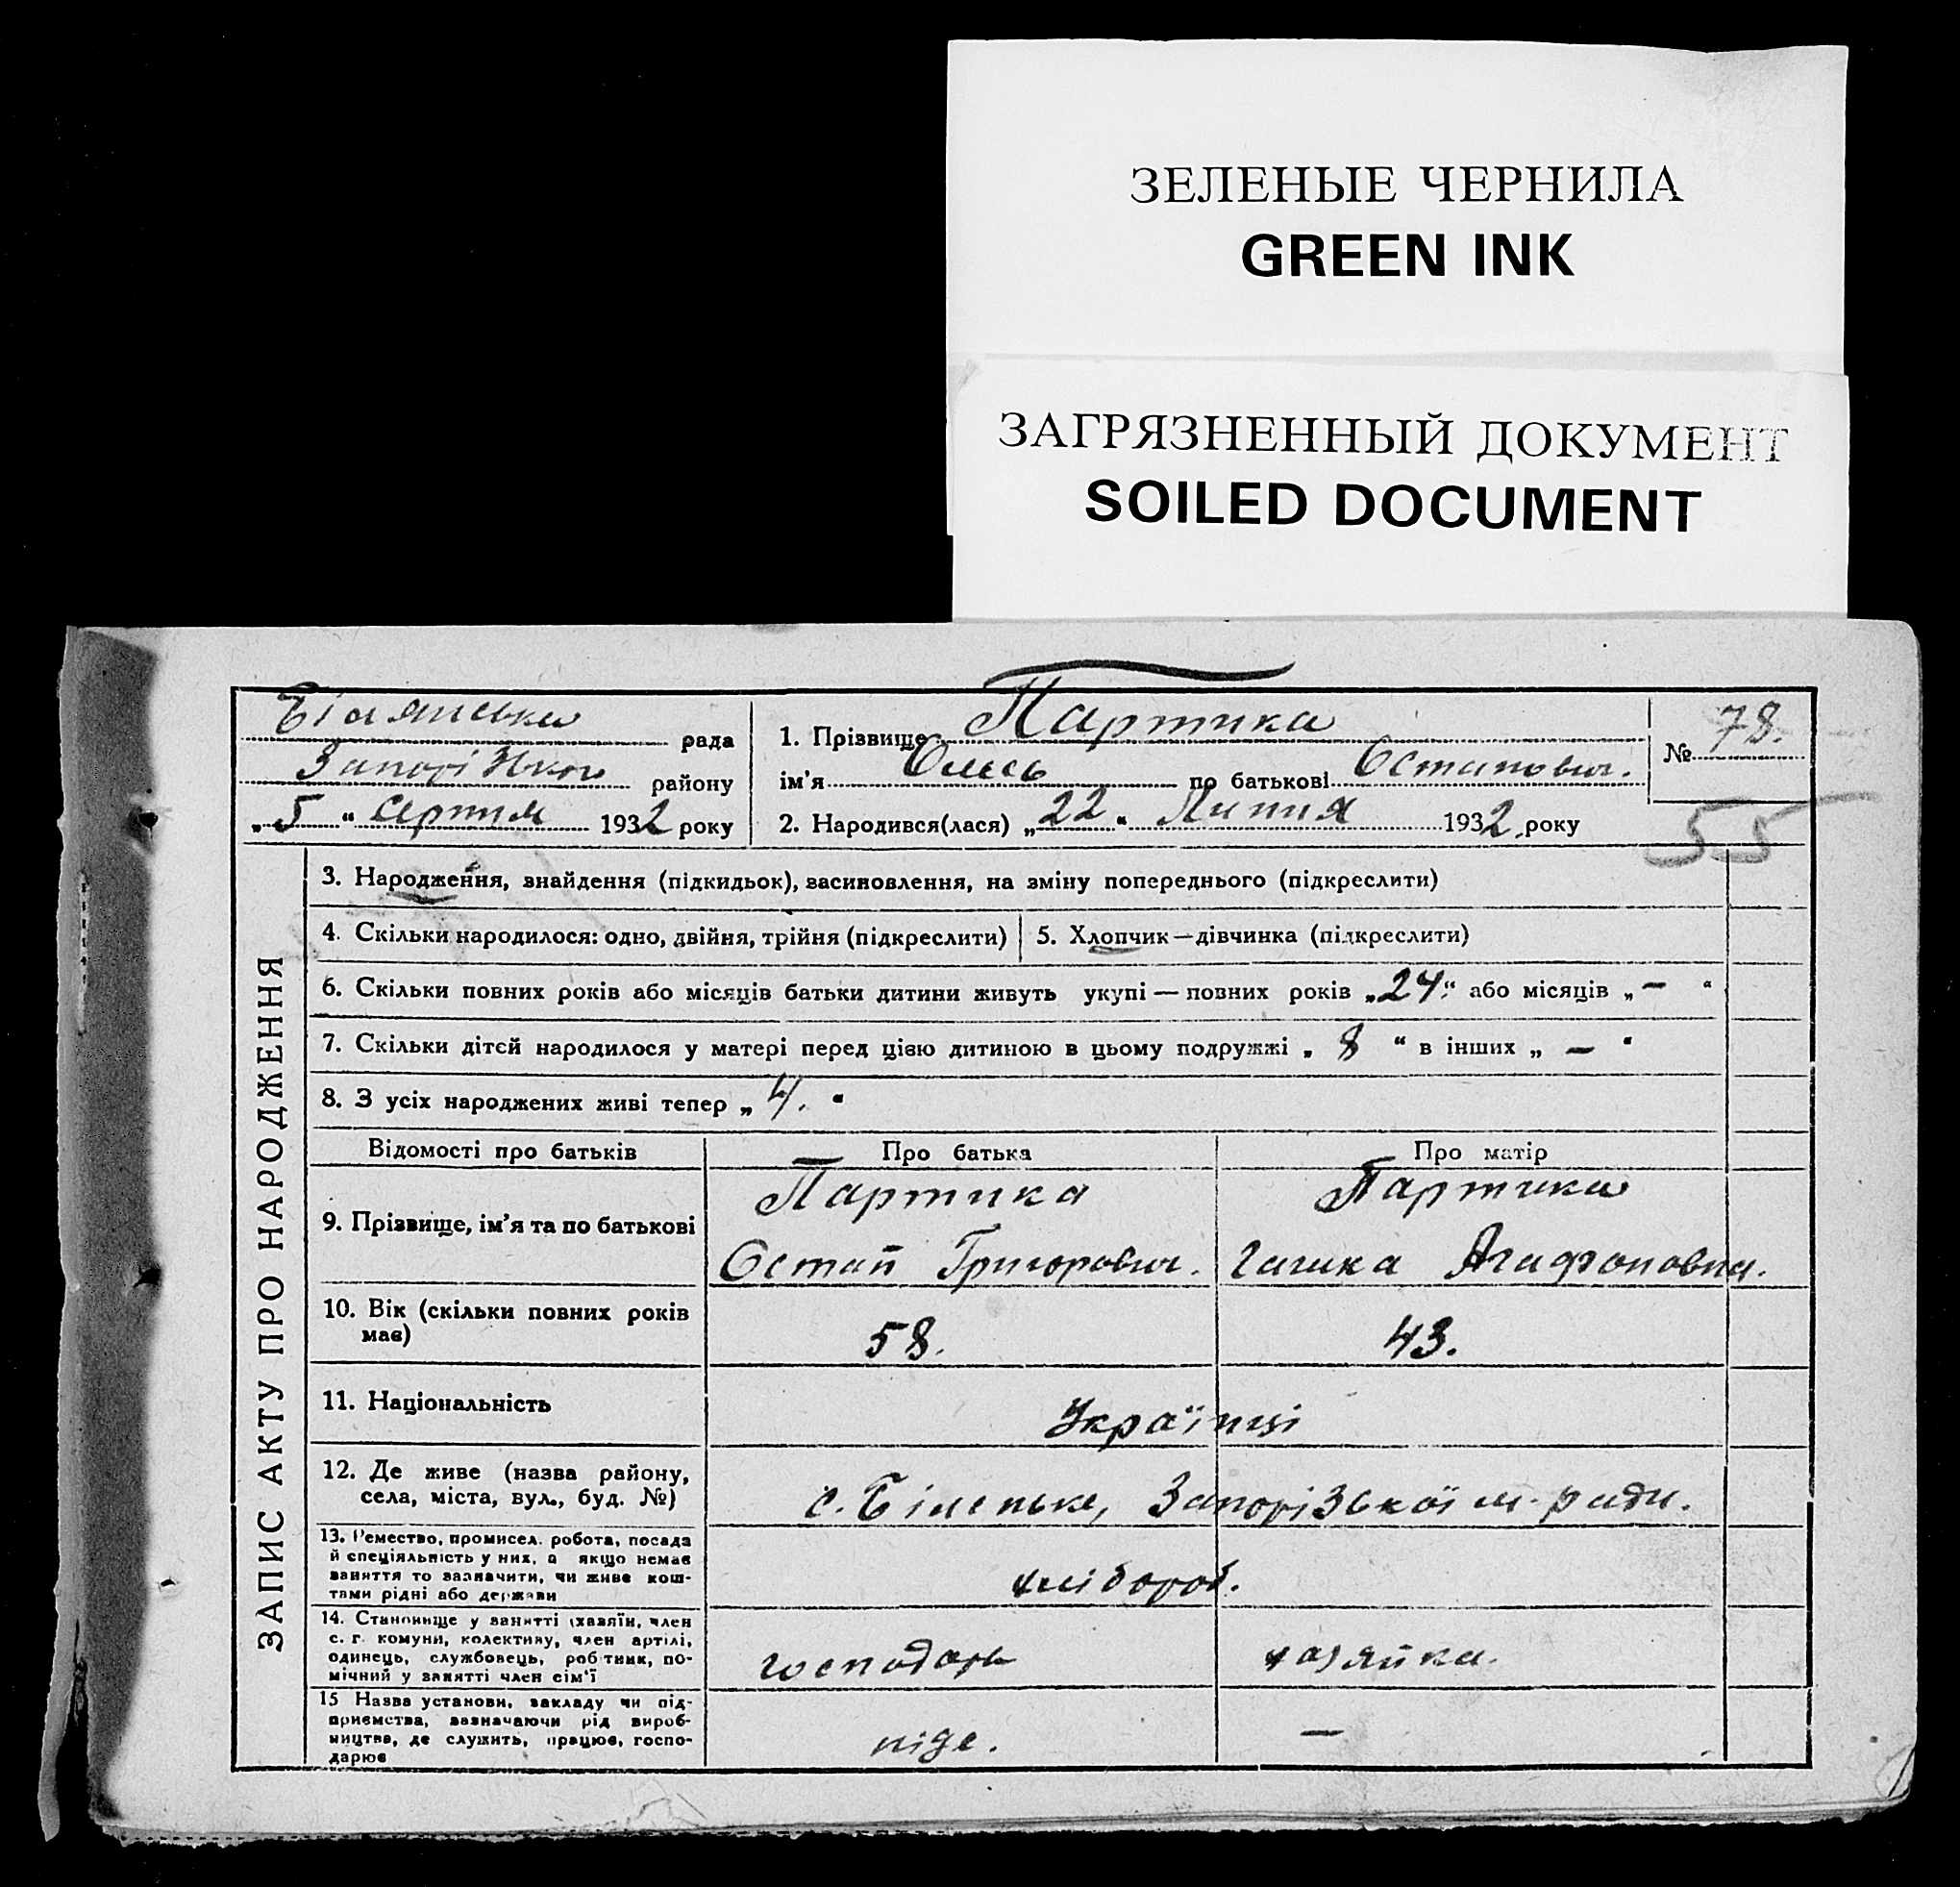 ЗЕЛЕНЫЕ ЧЕРНИЛА
GREEN INK
ЗАГРЯЗНЕННЫЙ ДОКУМЕНТ
SOILED DOCUMENT
рада
Запорізького району
„5“ серпня 1932 року
1. Прізвище Партика
ім'я Олесь по батькові Остапович.
2. Народився(лася) „22“ Липня 1932 року
№ 78.
55
ЗАПИС АКТУ ПРО НАРОДЖЕННЯ
3. Народження, знайдення (підкидьок), засиновлення, на зміну попереднього (підкреслити)
4. Скільки народилося: одно, двійня, трійня (підкреслити)
5. Хлопчик—дівчинка (підкреслити)
6. Скільки повних років або місяців батьки дитини живуть укупі — повних років „24.“ або місяців „—“
7. Скільки дітей народилося у матері перед цією дитиною в цьому подружжі „8“ в інших „—“
8. З усіх народжених живі тепер „4.“
Відомості про батьків
Про батька
Про матір
9. Прізвище, ім'я та по батькові
Партика
Остап Григорович.
Партика
Агафоновна.
10. Вік (скільки повних років має)
58.
43.
11. Національність
Українці
12. Де живе (назва району, села, міста, вул., буд. №)
с. Біленьке, Запорізької м. ради.
13. Ремество, промисел, робота, посада й спеціяльність у них, а якщо немає заняття то зазначити, чи живе коштами рідні або держави
хлібороб.
14. Становище у занятті (хазяїн, член с. г. комуни, колективу, член артілі, одинець, службовець, робітник, помічний у занятті член сім'ї
господарь
хазяйка.
15 Назва установи, закладу чи підприємства, зазначаючи рід виробництва, де служить, працює, господарює
ніде.
—